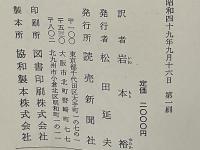 昭和四十九年九月十六日 第一刷
定価 二〇〇〇円
訳者 岩本裕
発行者 松田延夫
発行所 読売新聞社
〒一〇〇 東京都千代田区大手町一の七の一
〒五三〇 大阪市北区野崎町七七
〒八〇二 北九州市小倉北区明和町一の一一
印刷所 図書印刷株式会社
製本所 協和製本株式会社